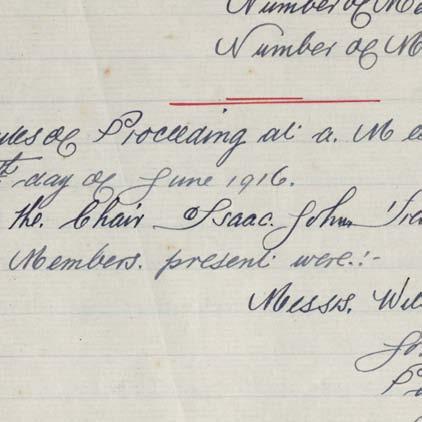 Number of Me
Number of M
utes of Proceeding at a. Mee
th day of June 1916.
the. Chair Isaac. John.
Members. present were.:-
Messrs. Wil
Jo